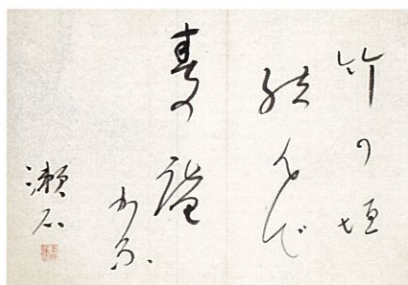 竹の垣
結んで
春の庵
かな
漱石